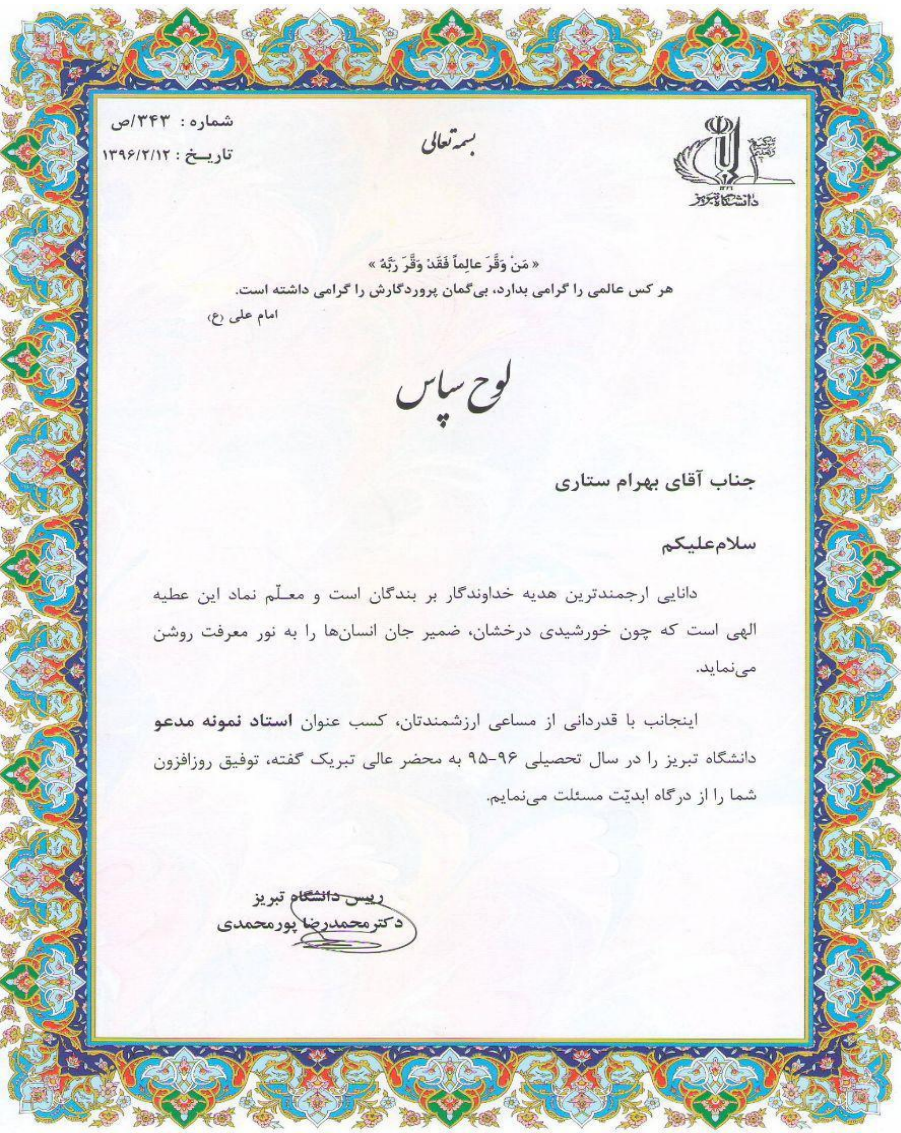 شماره : ۳۴۳/ص
تاریخ : ۱۳۹۶/۲/۱۲
بسمه تعالی
۱۳۲۶
دانشگاه تبریز
« مَنْ وَقَّرَ عالِماً فَقَدْ وَقَّرَ رَبَّهُ »
هر کس عالمی را گرامی بدارد، بی‌گمان پروردگارش را گرامی داشته است.
امام علی (ع)
لوح سپاس
جناب آقای بهرام ستاری
سلام‌علیکم
دانایی ارجمندترین هدیه خداوندگار بر بندگان است و معـلّم نماد این عطیه
الهی است که چون خورشیدی درخشان، ضمیر جان انسان‌ها را به نور معرفت روشن
می‌نماید.
اینجانب با قدردانی از مساعی ارزشمندتان، کسب عنوان استاد نمونه مدعو
دانشگاه تبریز را در سال تحصیلی ۹۶-۹۵ به محضر عالی تبریک گفته، توفیق روزافزون
شما را از درگاه ابدیّت مسئلت می‌نمایم.
رییس دانشگاه تبریز
دکتر محمدرضا پورمحمدی